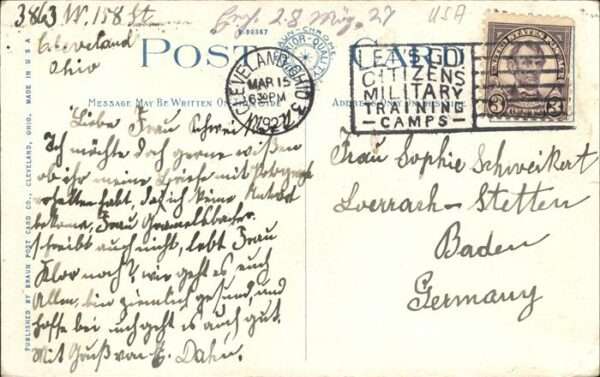 3863 W. 158 St.
Cleveland
Ohio
Erh. 28 März 27
USA
B-90367
POST CARD
MESSAGE MAY BE WRITTEN ON THIS SIDE
ADDRESS ONLY ON THIS SIDE
CLEVELAND, OHIO 3
MAR 15
630PM
1927
LET'S GO
CITIZENS
MILITARY
TRAINING
- CAMPS -
UNITED STATES POSTAGE
LINCOLN
3 3
Liebe Frau Schwei
Ich möchte doch gerne wissen
ob ihr meine Briefe mit
erhalten habt, da ich keine Antwort
bekome, Frau Gramelsbacher
schreibt auch nicht, lebt Frau
Klor noch? wie geht es euch
Allen, bin ziemlich gesund, und
hoffe bei euch geht es auch gut.
Mit Gruß von E. Dahn.
Frau Sophie Schweikert
Loerrach-Stetten
Baden
Germany
PUBLISHED BY BRAUN POST CARD CO., CLEVELAND, OHIO. MADE IN U.S.A.